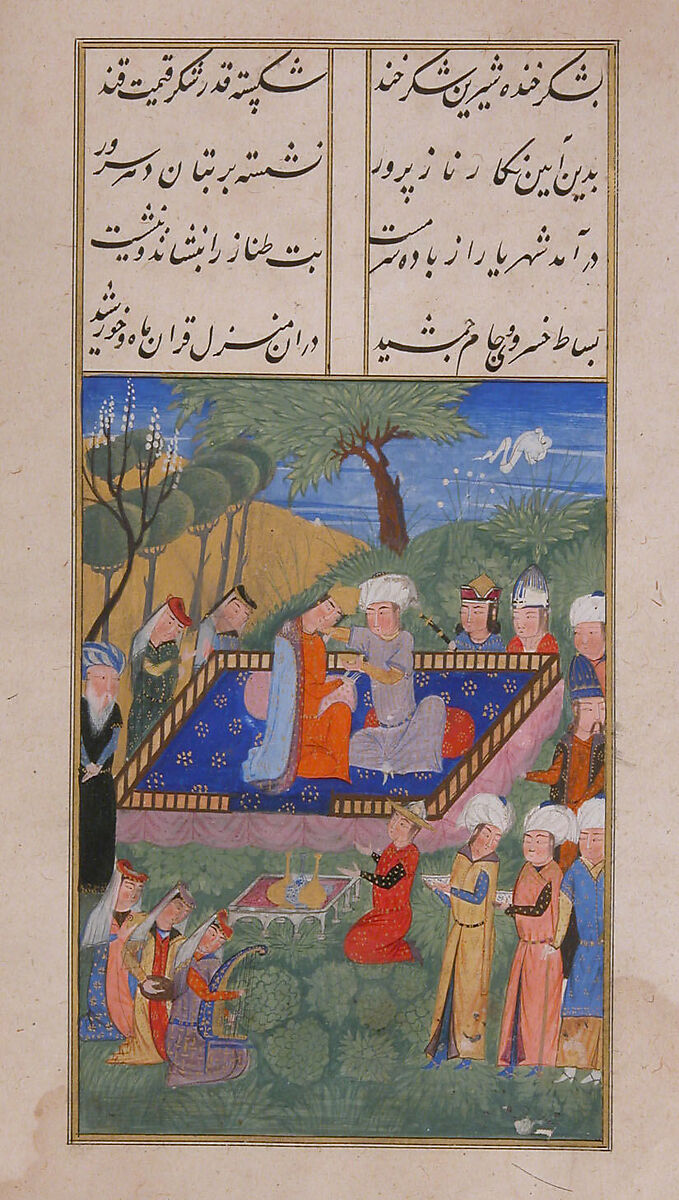 بشکر خنده شیرین شکر خند شکسته قدر شکر قیمت قند
بدین آیین نگار ناز پرور نشسته بر بتان دهر سرور
در آمد شهریار از باده سرمست بت طناز را بنشاند و بنشست
بساط خسروی و جام جمشید دران منزل قران ماه و خورشید